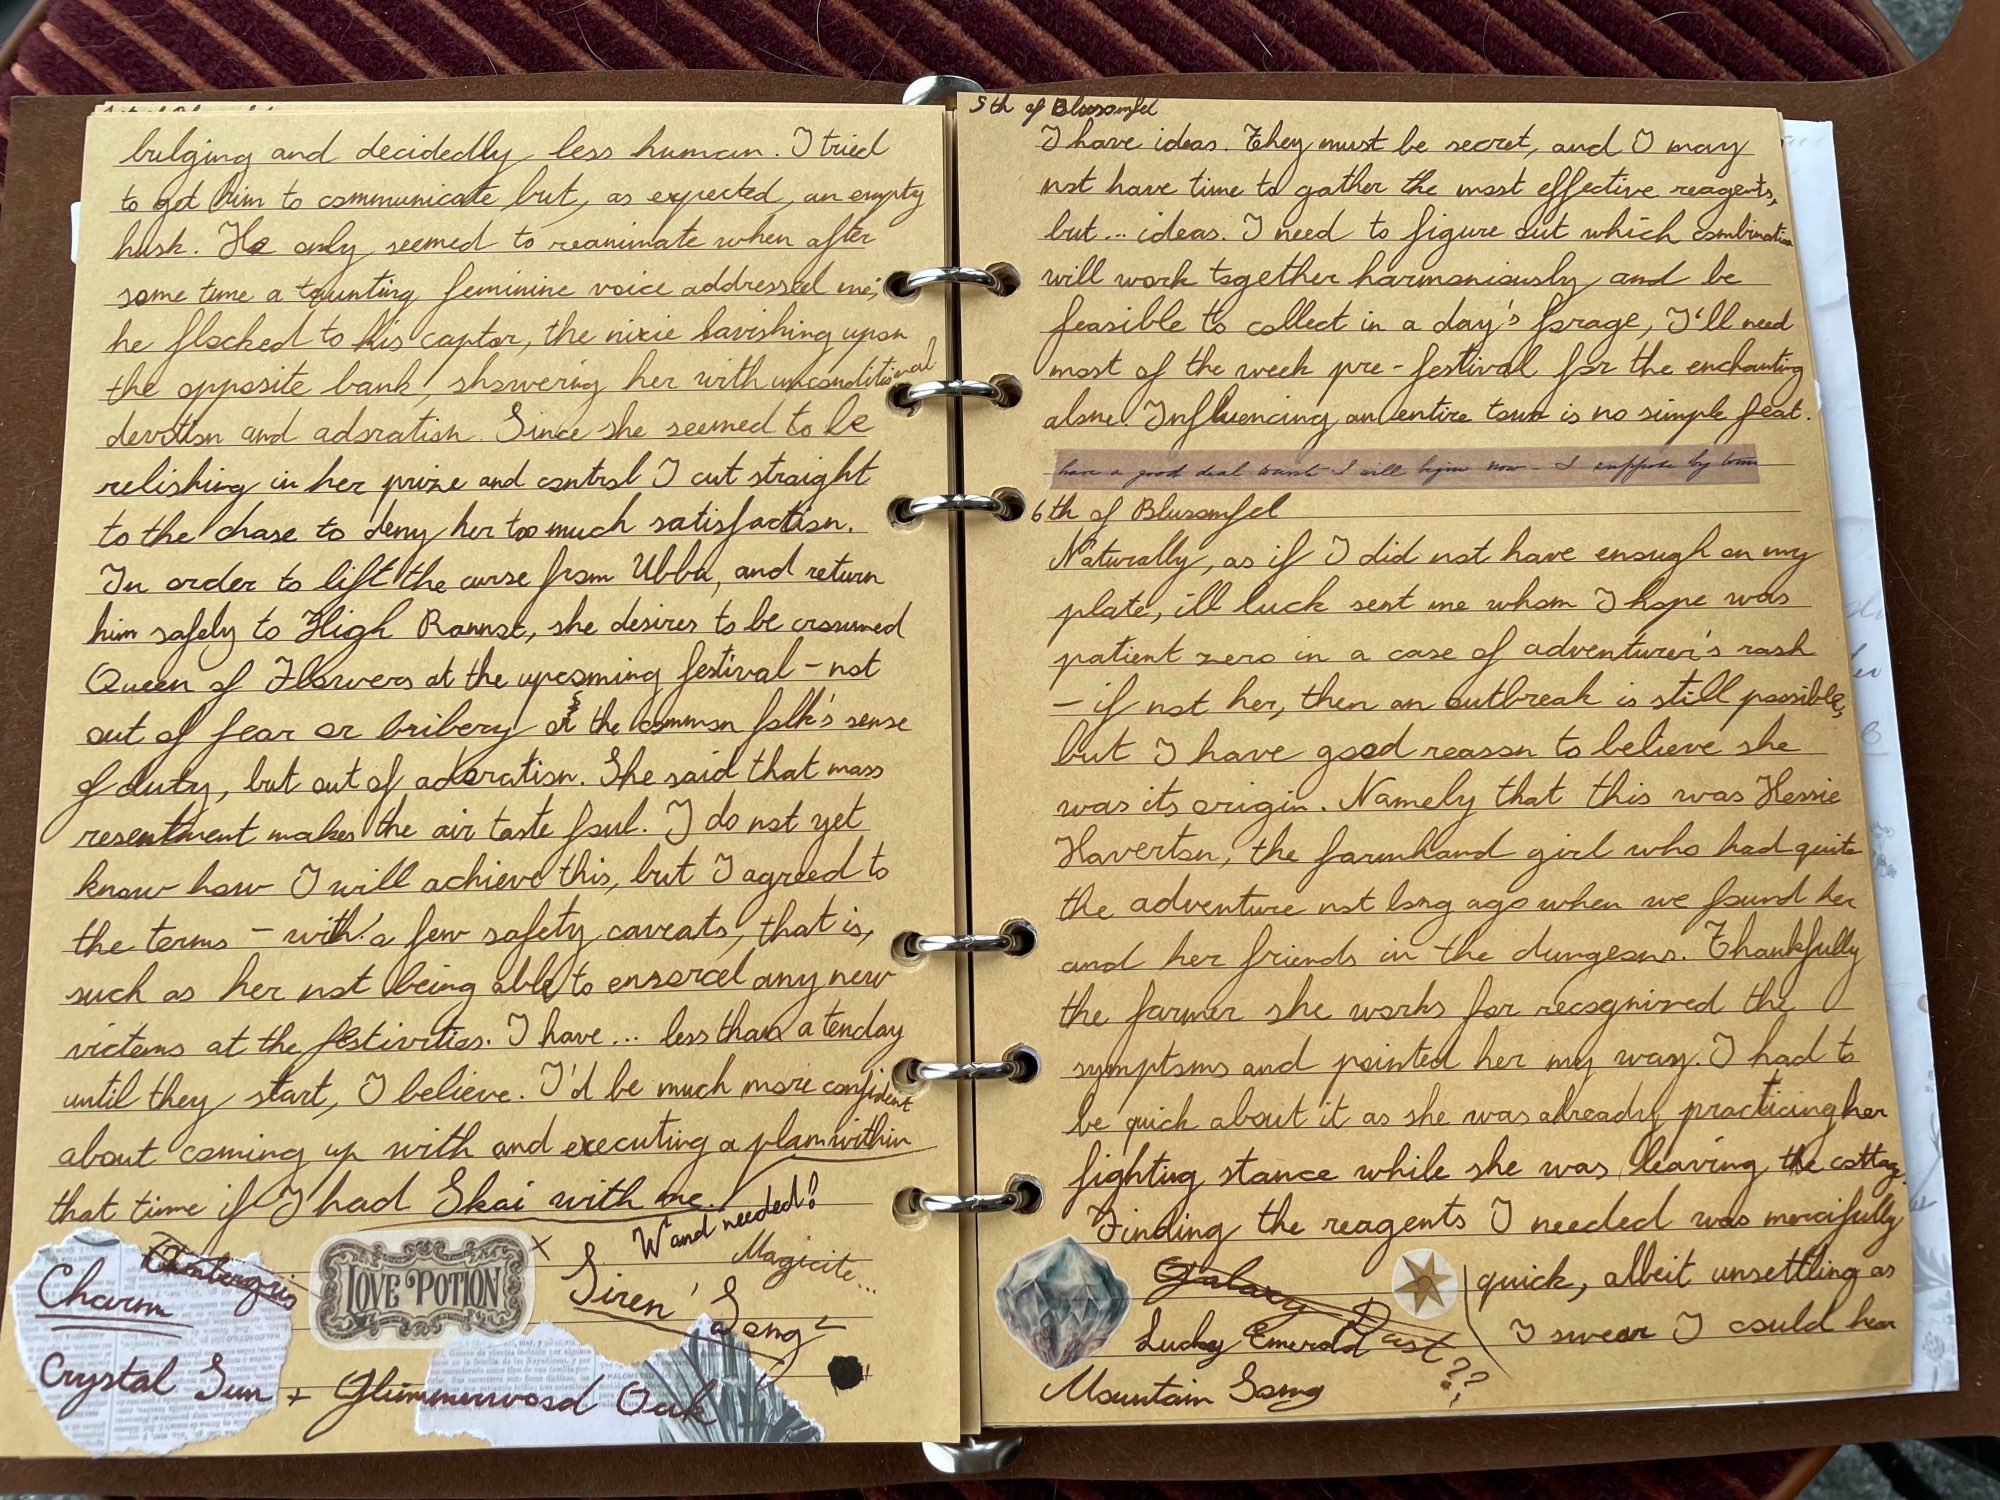 bulging and decidedly less human. I tried
to get him to communicate but, as expected, an empty
husk. He only seemed to reanimate when after
some time a taunting feminine voice addressed me;
he flocked to his captor, the nixie lavishing upon
the opposite bank, showering her with unconditional
devotion and adoration. Since she seemed to be
relishing in her prize and control I cut straight
to the chase to deny her too much satisfaction.
In order to lift the curse from Ubba, and return
him safely to High Rannoc, she desires to be crowned
Queen of Flowers at the upcoming festival – not
out of fear or bribery or the common folk's sense
of duty, but out of adoration. She said that mass
resentment makes the air taste foul. I do not yet
know how I will achieve this, but I agreed to
the terms – with a few safety caveats, that is,
such as her not being able to ensorcel any new
victims at the festivities. I have... less than a tenday
until they start, I believe. I'd be much more confident
about coming up with and executing a plan within
that time if I had Skai with me.
Wand needed?
Magicite...
Ambergris
Charm
LOVE POTION
Siren' Song
Crystal Sun + Glimmerwood Oak
5th of Blussomfel
I have ideas. They must be secret, and I may
not have time to gather the most effective reagents,
but... ideas. I need to figure out which combination
will work together harmoniously and be
feasible to collect in a day's forage, I'll need
most of the week pre-festival for the enchanting
alone. Influencing an entire town is no simple feat.
have a good deal I will begin now – I suppose by
6th of Blussomfel
Naturally, as if I did not have enough on my
plate, ill luck sent me whom I hope was
patient zero in a case of adventurer's rash
– if not her, then an outbreak is still possible,
but I have good reason to believe she
was its origin. Namely that this was Hessie
Haverton, the farmhand girl who had quite
the adventure not long ago when we found her
and her friends in the dungeons. Thankfully
the farmer she works for recognized the
symptoms and pointed her my way. I had to
be quick about it as she was already practicing her
fightig stance while she was leaving the cottage.
Finding the reagents I needed was mercifully
quick, albeit unsettling as
I swear I could hear
Galaxy Dust
Lucky Emerald ??
Mountain Song